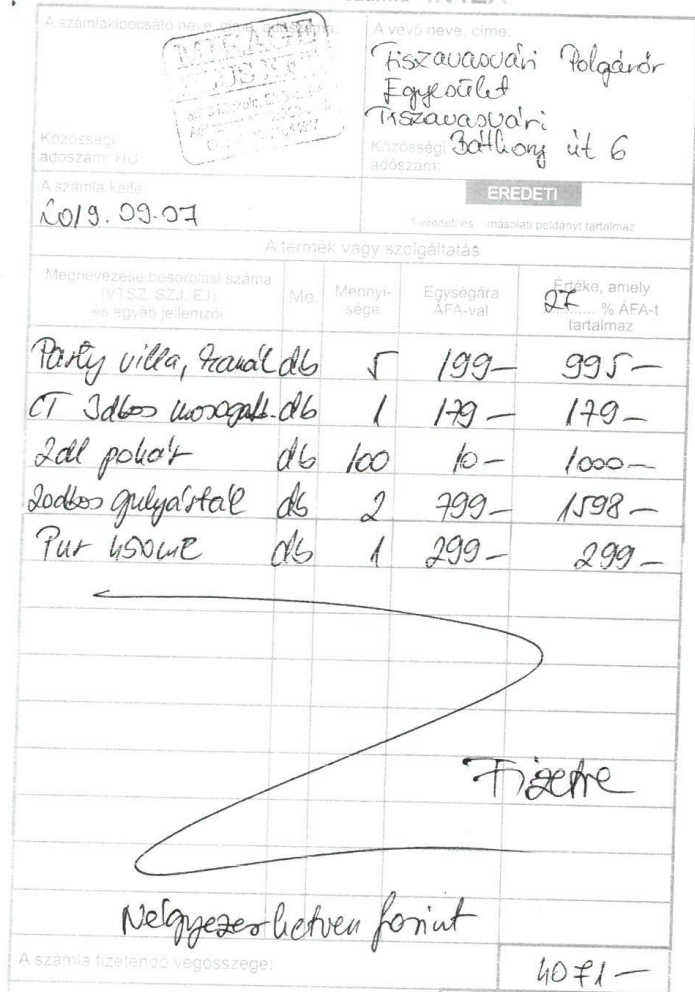 A számlakibocsátó neve, címe, adószáma:
Közösségi
adószám: HU
A vevő neve, címe:
Tiszavasvári Polgárőr
Egyesület
Tiszavasvári
Közösségi Báthory út 6
adószám:
A számla kelte:
2019.09.07
EREDETI
1 eredeti és másolati példányt tartalmaz
A termék vagy szolgáltatás
Megnevezése, besorolási száma
(VTSZ, SZJ, EJ)
és egyéb jellemzői
Me.
Mennyi-
sége
Egységára
ÁFA-val
Értéke, amely
27 % ÁFA-t
tartalmaz
Party villa, kanál db 5 199- 995-
CT 3dbos mosogat. db 1 179- 179-
2dl pohár db 100 10- 1000-
20dbos gulyástál db 2 799- 1598-
Pur 450ml db 1 299- 299-
Fizetve
Négyezerhetven forint
A számla fizetendő végösszege: 4071-